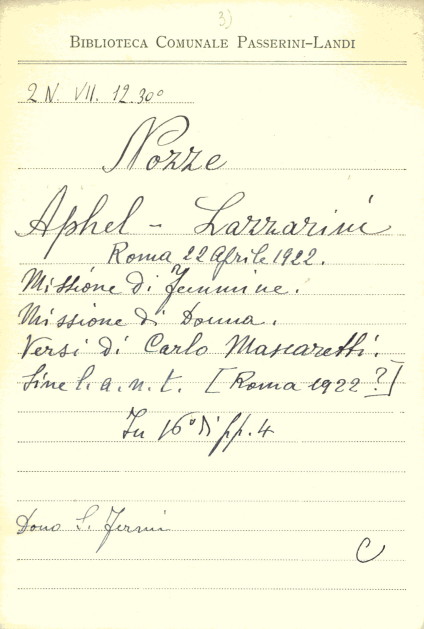 3)
BIBLIOTECA COMUNALE PASSERINI-LANDI
2 N. VII. 12.30°
Nozze
Aphel - Lazzarini
Roma 22 Aprile 1922.
Missione di femmine.
Missione di Donna.
Versi di Carlo Mascaretti.
Sine l. a. n. t. [Roma 1922?]
In 16° di pp. 4
Dono S. Fermi
C